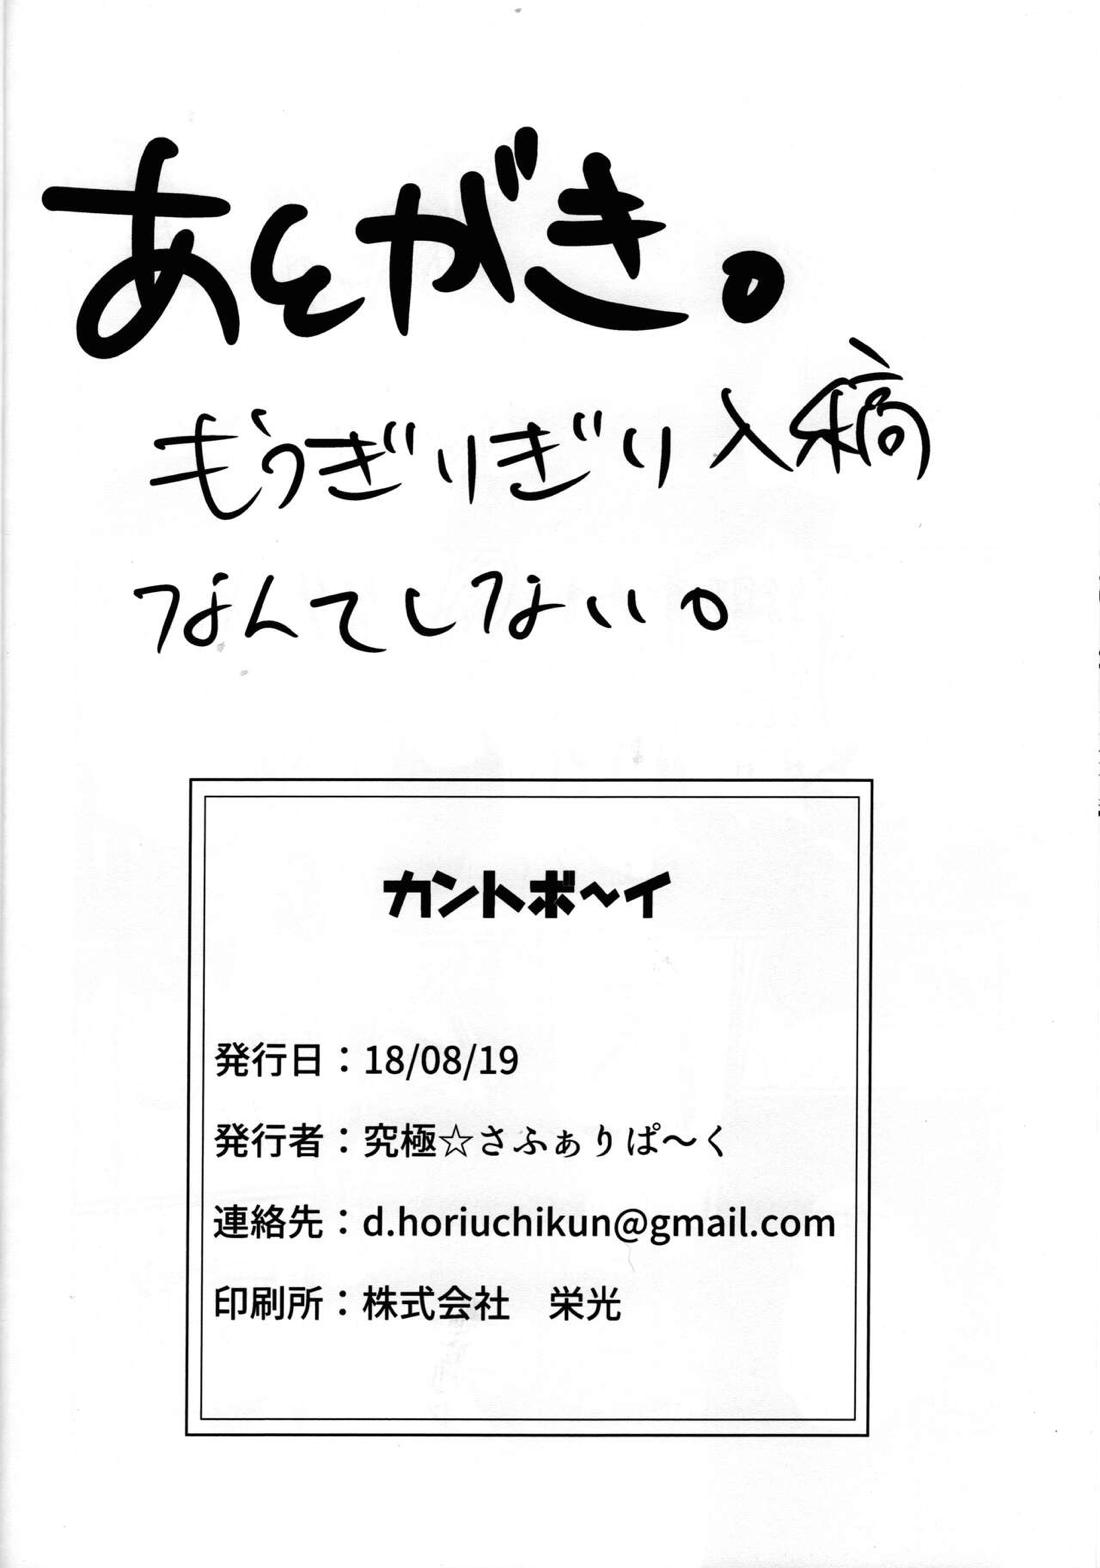 あとがき。
もうぎりぎり入稿
なんてしない。
カントボ～イ
発行日：18/08/19
発行者：究極☆さふぁりぱ～く
連絡先：d.horiuchikun@gmail.com
印刷所：株式会社　栄光